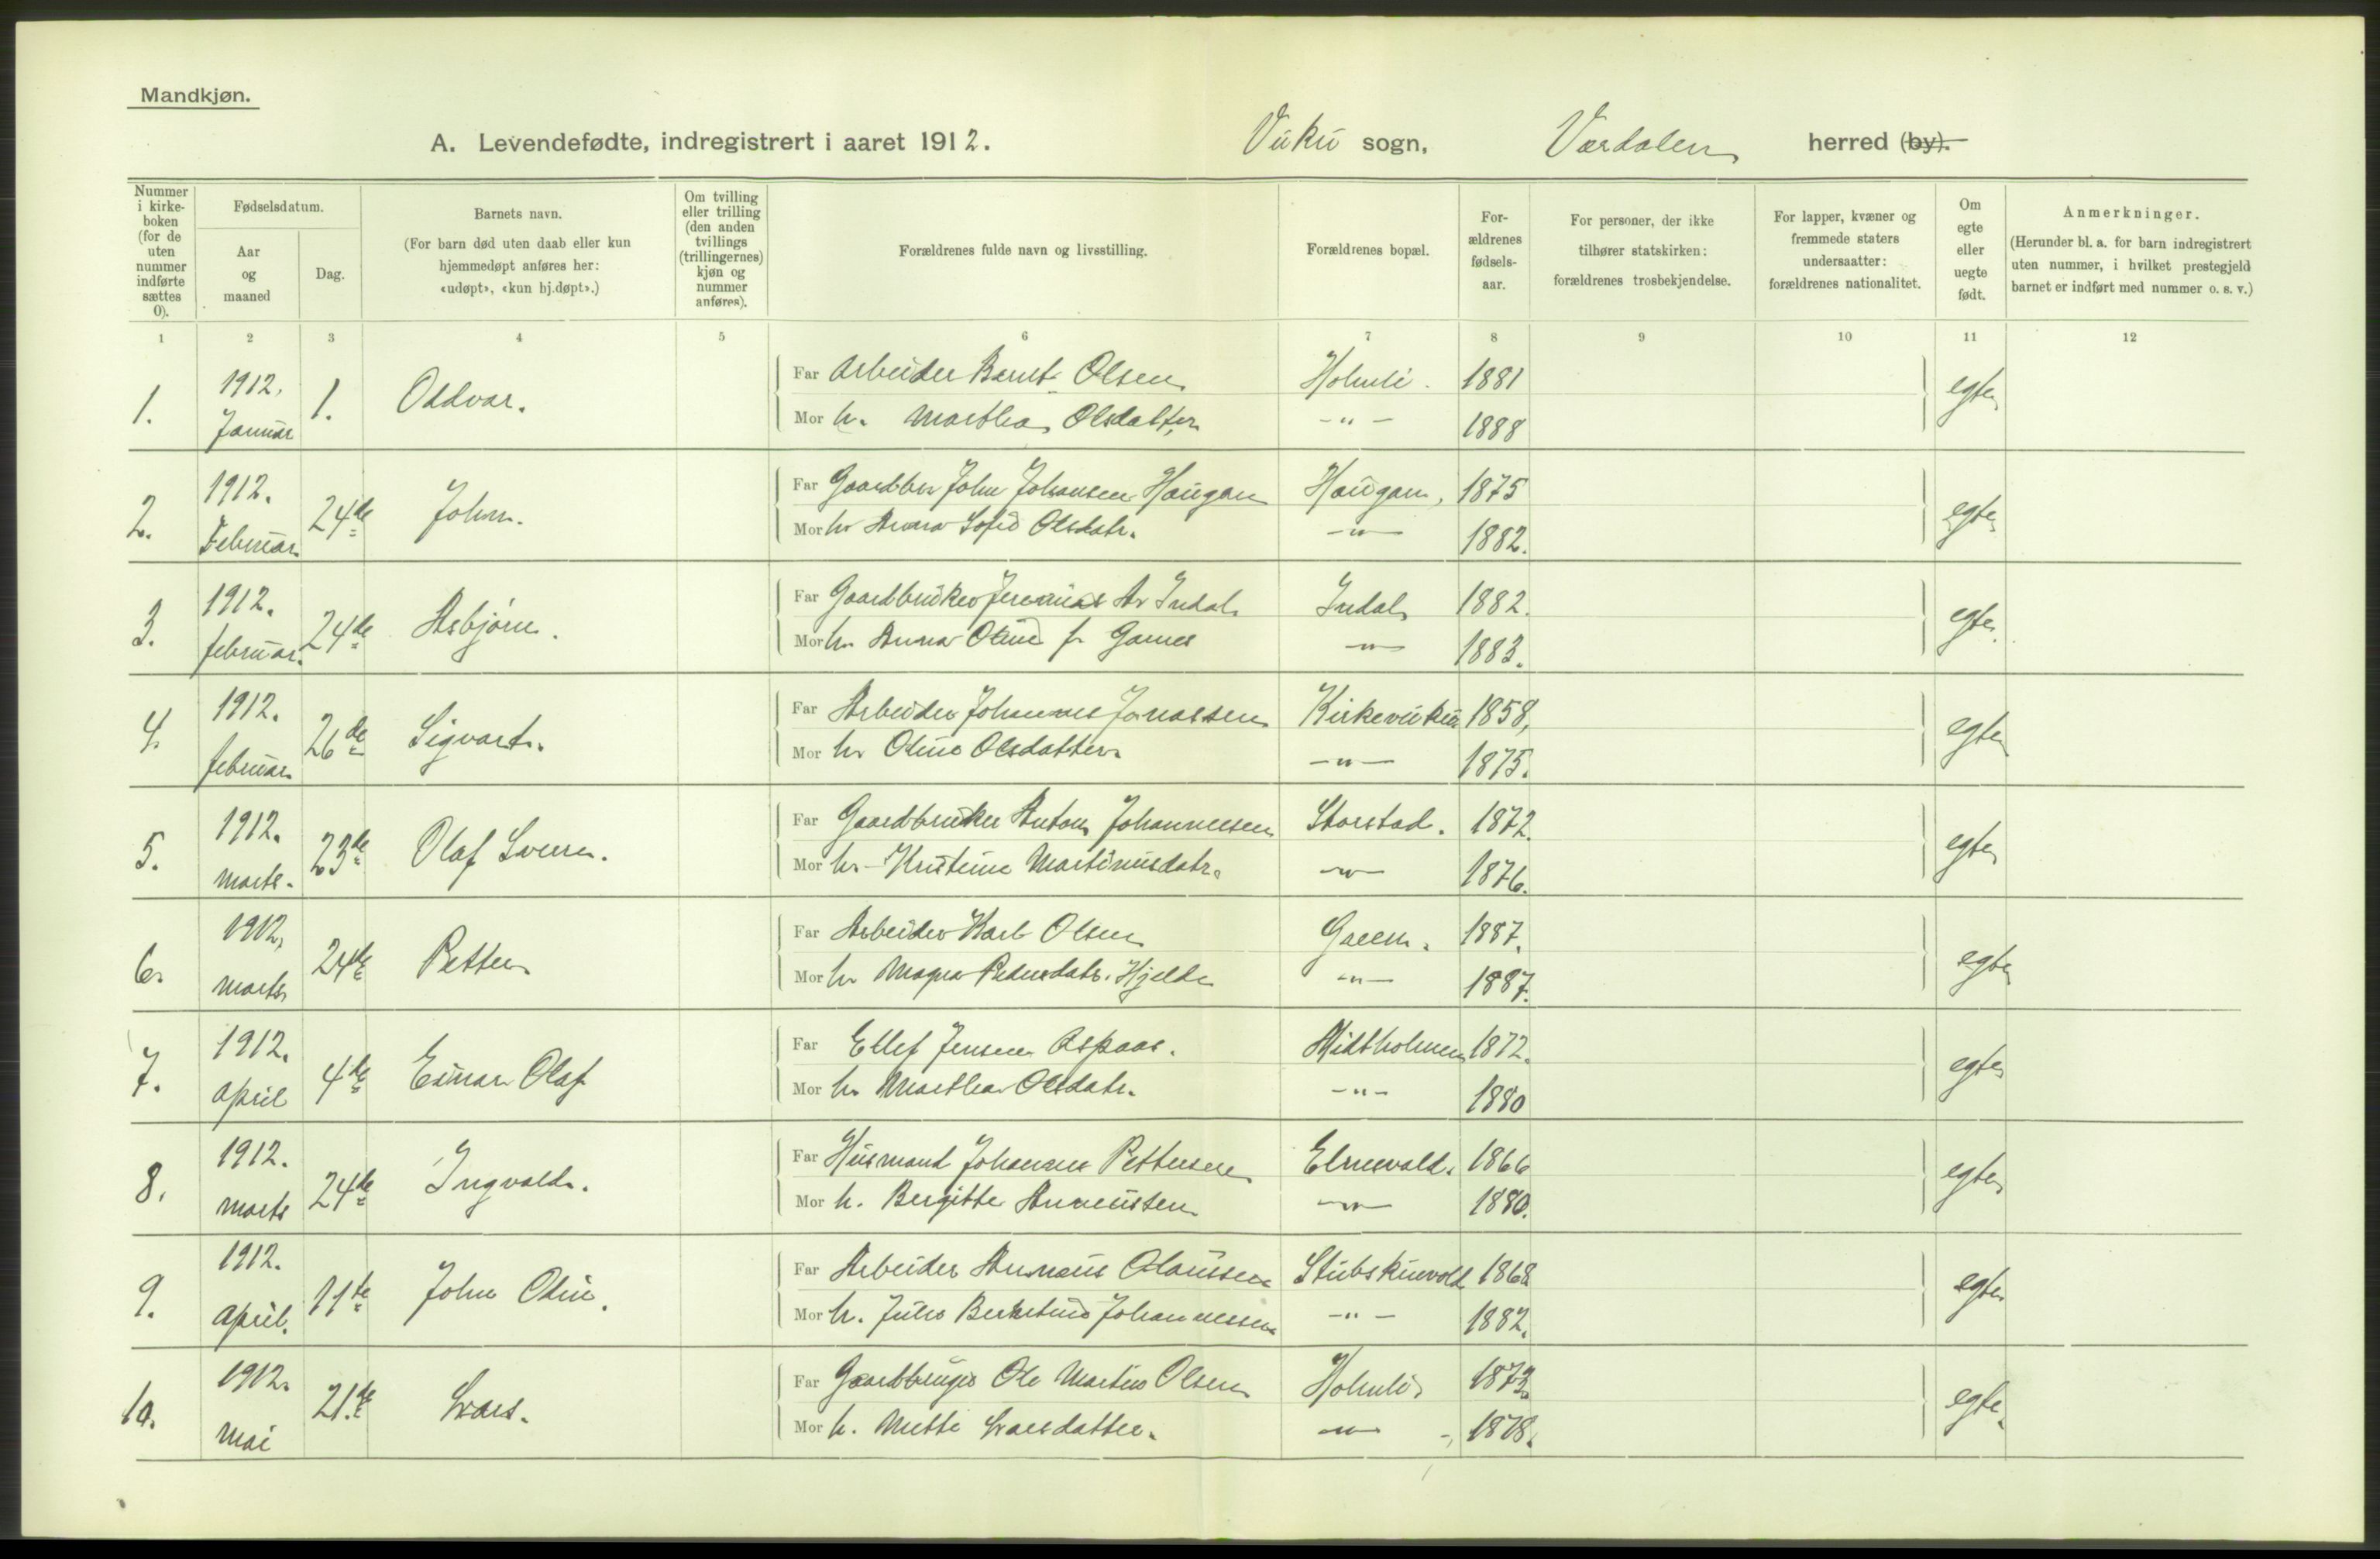 Mandkjøn.
A. Levendefødte, indregistrert i aaret 1912. Vuku sogn, Værdalen herred (by).
Nummer i kirke-boken (for de uten nummer indførte sættes 0).
Fødselsdatum.
Aar og maaned
Dag.
Barnets navn.
(For barn død uten daab eller kun hjemmedøpt anføres her: «udøpt», «kun hj.døpt».)
Om tvilling eller trilling (den anden tvillings (trillingernes) kjøn og nummer anføres).
Forældrenes fulde navn og livsstilling.
Forældrenes bopæl.
For-ældrenes fødsels-aar.
For personer, der ikke tilhører statskirken: forældrenes trosbekjendelse.
For lapper, kvæner og fremmede staters undersaatter: forældrenes nationalitet.
Om egte eller uegte født.
Anmerkninger.
(Herunder bl. a. for barn indregistrert uten nummer, i hvilket prestegjeld barnet er indført med nummer o. s. v.)
1 2 3 4 5 6 7 8 9 10 11 12
1. 1912. Januar 1. Oddvar. Far Arbeider Bernt Olsen Holmli. 1881 egte
Mor h. Marthea Olsdatter - " - 1888
2. 1912. Februar 24de John. Far Gaardbr John Johansen Haugan Haugan, 1875 egte
Mor h. Anna Sofie Olsdatr. - " - 1882.
3. 1912. februar. 24de Asbjørn. Far Gaardbruker Jeremias A. Indal Indal 1882. egte
Mor h. Anna Oline f. Garnes - " - 1883.
4. 1912. februar 26de Sigvart. Far Arbeider Johannes Jonassen Kirkevuku 1858, egte
Mor h. Oline Olsdatter. - " - 1875.
5. 1912. marts. 23de Olaf Sverre. Far Gaardbruker Anton Johannessen Storstad. 1872. egte
Mor h. Kristine Martinusdatr. - " - 1876.
6. 1912, marts 24de Petter Far Arbeider Karl Olsen Green. 1887. egte
Mor h. Magna Pedersdatr. Hjelde - " - 1887.
7. 1912. april 4de Einar Olaf Far Ellef Jensen Aspaas. Midtholmen 1872. egte
Mor h. Marthea Olsdatr. - " - 1880
8. 1912. marts 24de Ingvald. Far Husmand Johannes Pettersen Elnesvald. 1866 egte
Mor h. Bergitte - " - 1880.
9. 1912. april. 11te John Odin. Far Arbeider Olaussen 1868 egte
Mor h. Julie Johannessen - " - 1882.
10. 1912. mai 21de Lars. Far Gaardbruger Ole Martin Olsen Holmli 1873. egte.
Mor h. Mette Larsdatter. - " - 1878.